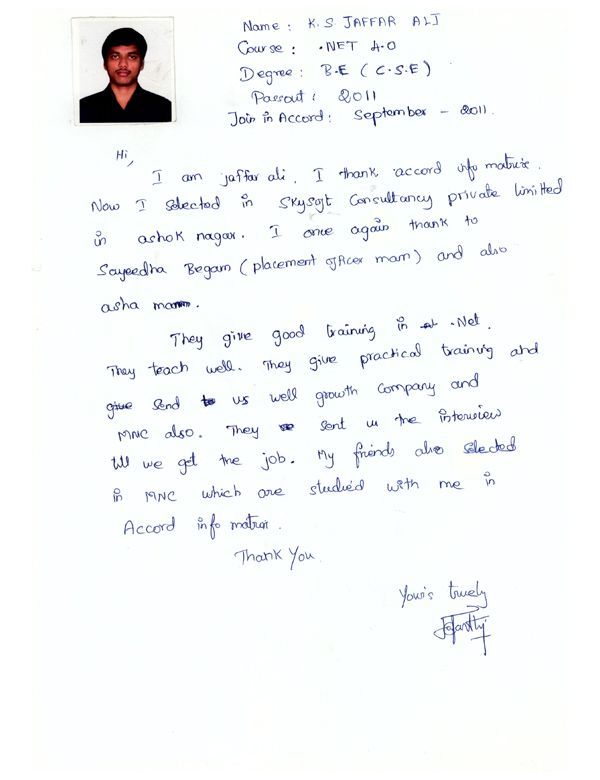 Name : K.S JAFFAR ALI
Course : .NET 4.0
Degree : B.E ( C.S.E )
Passout : 2011
Join in Accord : September - 2011.
Hi,
I am jaffar ali. I thank accord info matrix.
Now I selected in Skysoft Consultancy private limitted
in ashok nagar. I once again thank to
Sayeedha Begam ( placement officer mam ) and also
asha mam.
They give good training in .Net.
They teach well. They give practical training and
give send us well growth company and
MNC also. They sent us the interview
till we get the job. My friends also selected
in MNC which are studied with me in
Accord info matrix.
Thank You
Your's truely